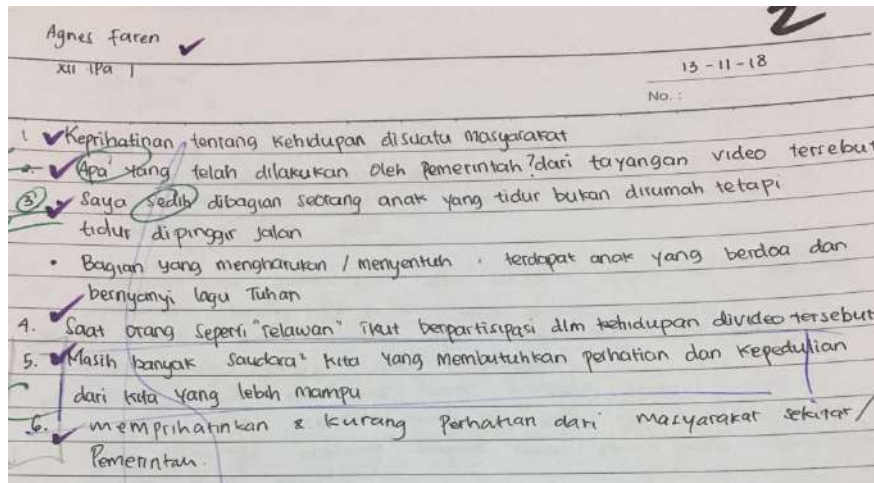 2
Agnes Faren
XII IPA 1
13-11-18
No. :
1. Keprihatinan, tentang kehidupan disuatu masyarakat
2. Apa yang telah dilakukan oleh Pemerintah? dari tayangan video tersebut
3. Saya sedih dibagian seorang anak yang tidur bukan dirumah tetapi
tidur dipinggir jalan
• Bagian yang mengharukan / menyentuh . terdapat anak yang berdoa dan
bernyanyi lagu Tuhan
4. Saat orang seperti "relawan" ikut berpartisipasi dlm kehidupan divideo tersebut
5. Masih banyak saudara² kita yang membutuhkan perhatian dan kepedulian
dari kita yang lebih mampu
6. memprihatinkan & kurang Perhatian dari masyarakat sekitar /
Pemerintah.